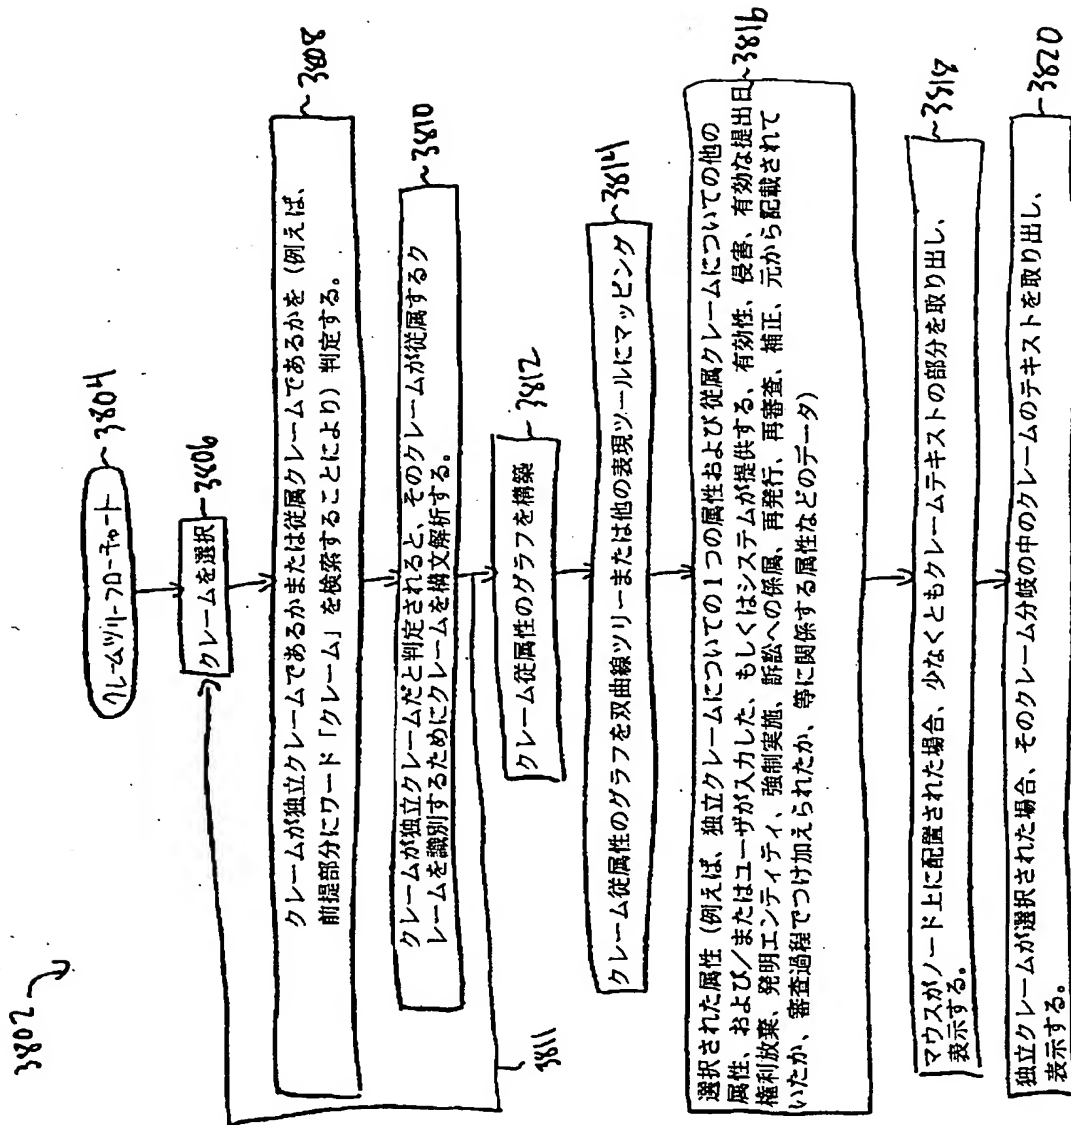 3802
クレームツリーフローチャート
~3804
クレームを選択
~3806
クレームが独立クレームであるかまたは従属クレームであるかを（例えば、
前提部分にワード「クレーム」を検索することにより）判定する。
~3808
クレームが独立クレームだと判定されると、そのクレームが従属するク
レームを識別するためにクレームを構文解析する。
~3810
3811
クレーム従属性のグラフを構築
~3812
クレーム従属性のグラフを双曲線ツリーまたは他の表現ツールにマッピング
~3814
選択された属性（例えば、独立クレームについての１つの属性および従属クレームについての他の
属性、および／またはユーザが入力した、もしくはシステムが提供する、有効性、侵害、有効な提出日、
権利放棄、発明エンティティ、強制実施、訴訟への係属、再発行、再審査、補正、元から記載されて
いたか、審査過程でつけ加えられたか、等に関係する属性などのデータ）
~3816
マウスがノード上に配置された場合、少なくともクレームテキストの部分を取り出し、
表示する。
~3818
独立クレームが選択された場合、そのクレーム分岐の中のクレームのテキストを取り出し、
表示する。
~3820